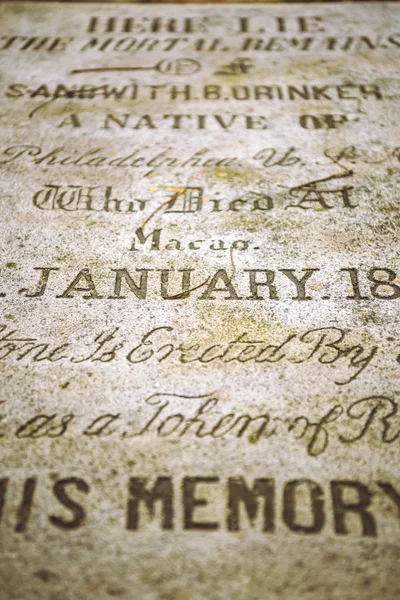 HERE LIE
THE MORTAL REMAINS
OF
SANDWITH.B.DRINKER
A NATIVE OF
Philadelphia U. S.
Who Died At
Macao.
JANUARY. 18
Is Erected By
as a Token of
HIS MEMORY